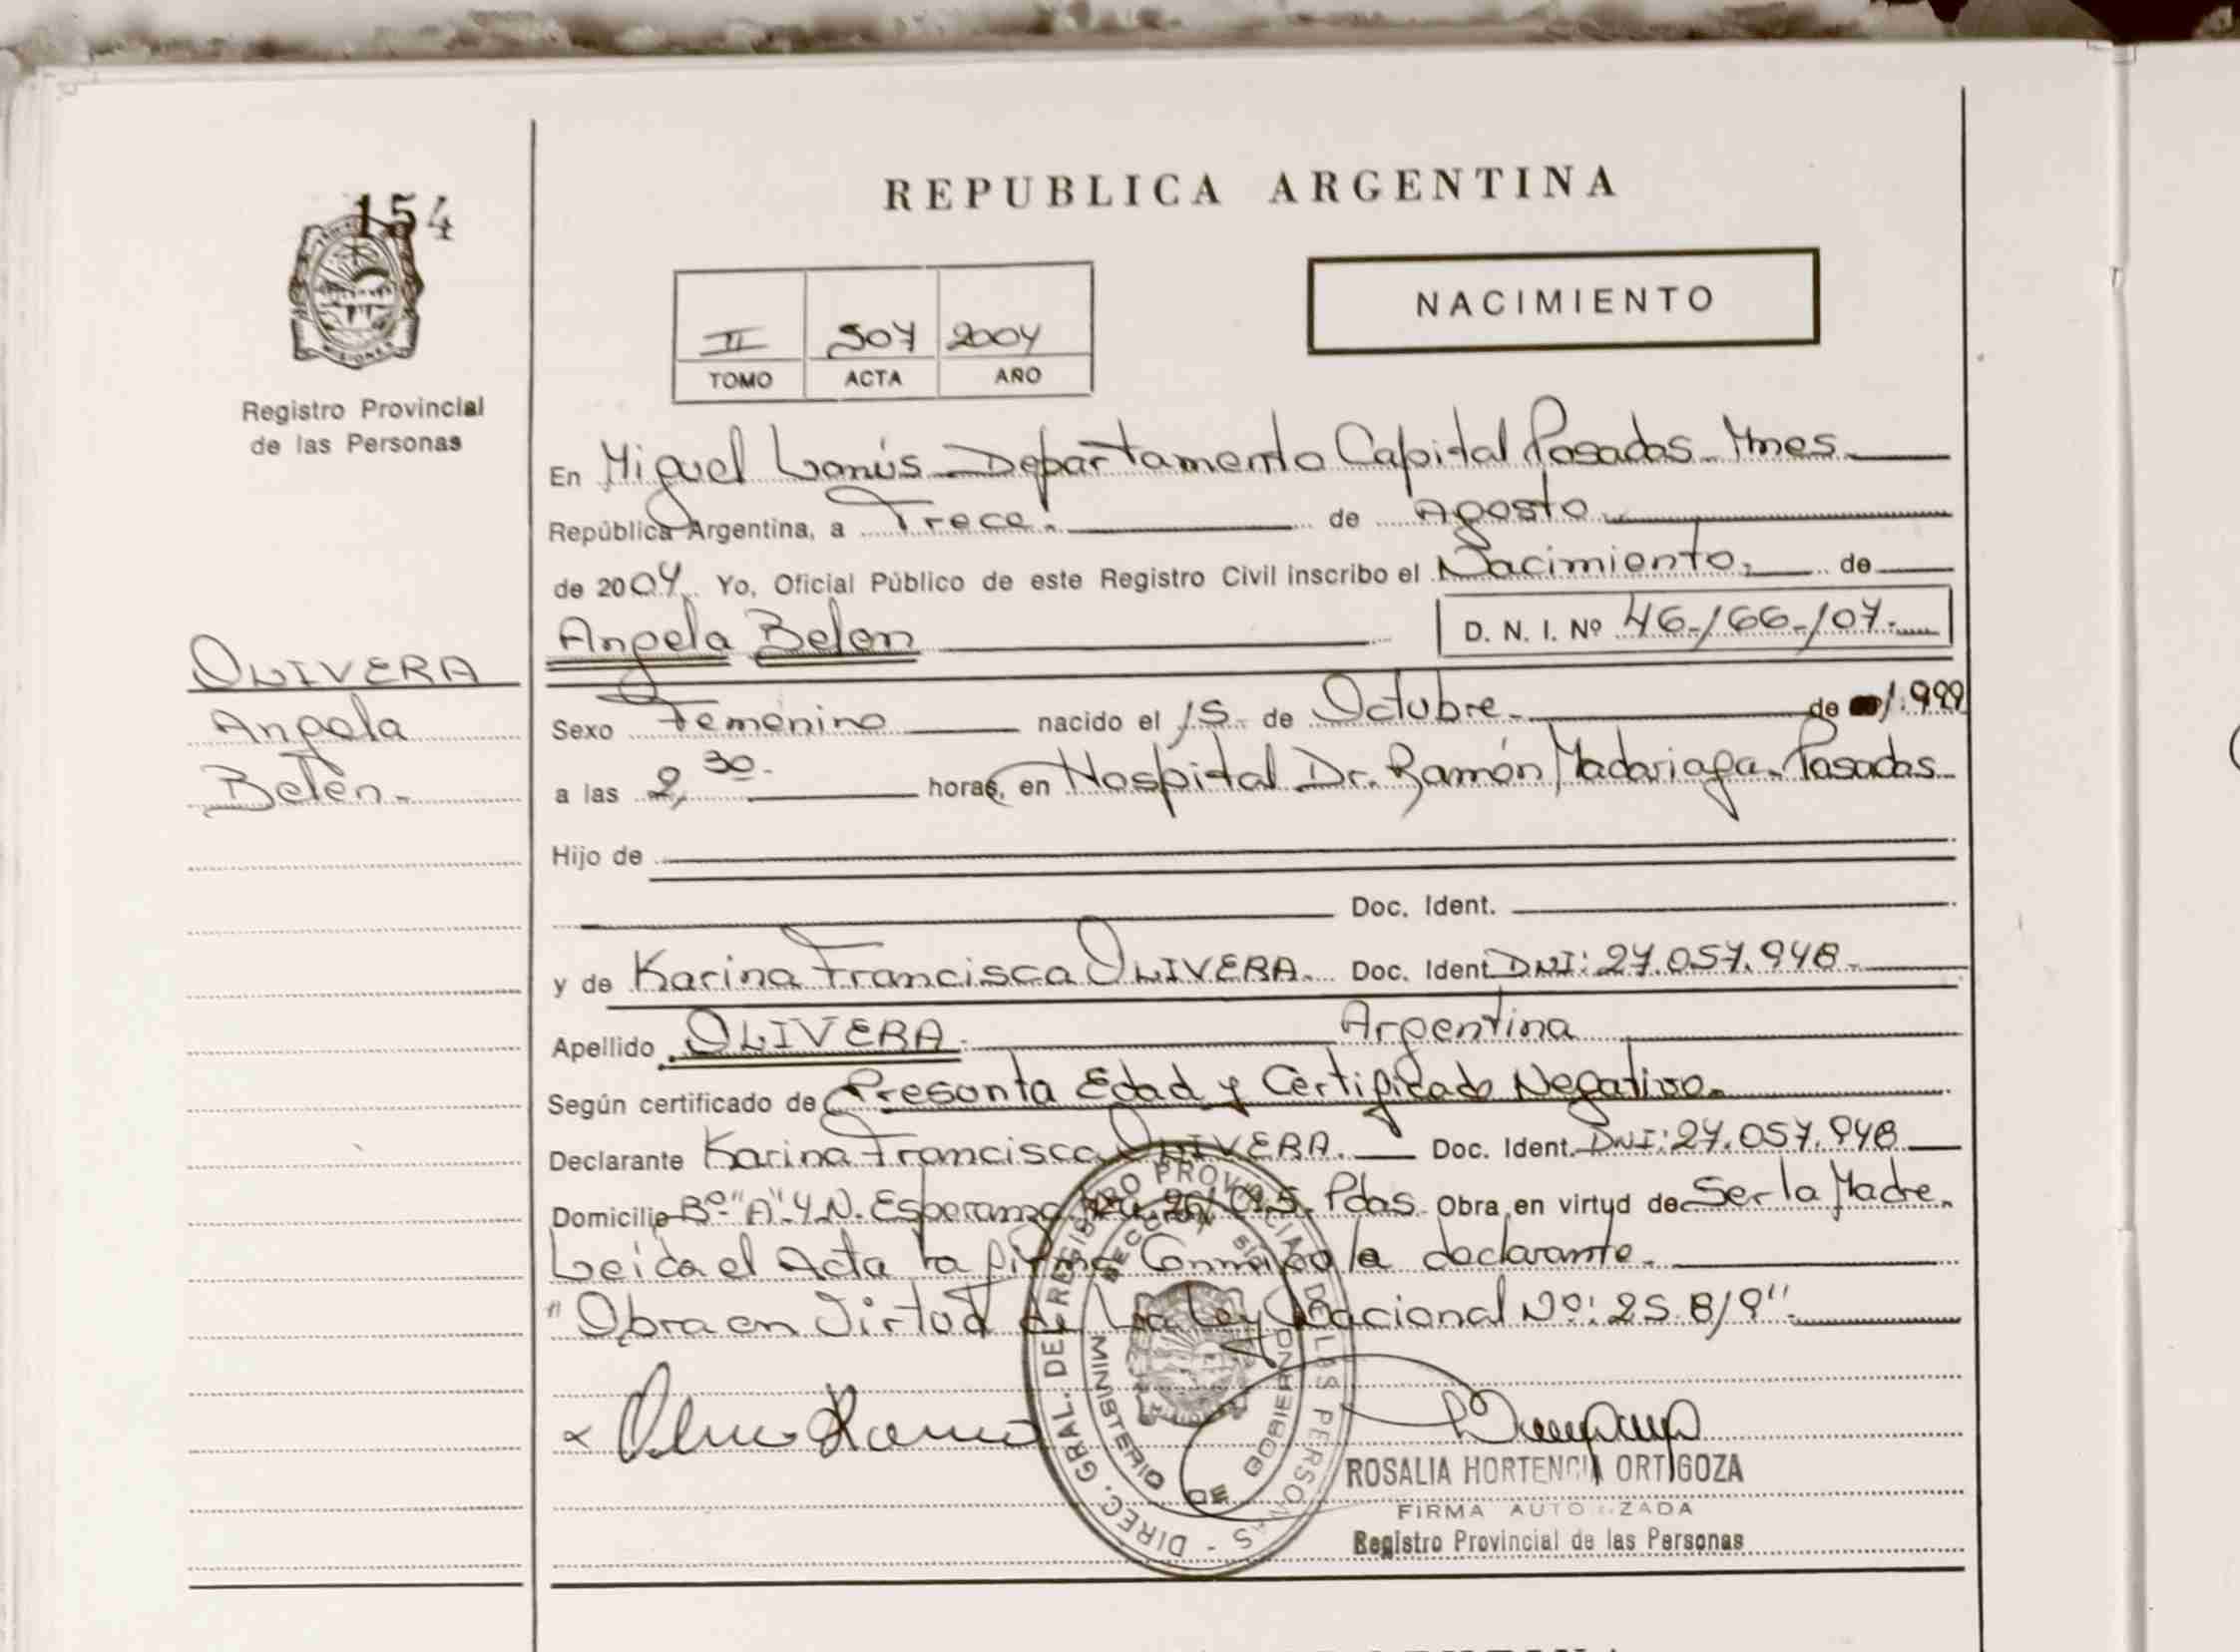 154
REPUBLICA ARGENTINA
NACIMIENTO
II 507 2004
TOMO ACTA AÑO
Registro Provincial
de las Personas
En Miguel Lanús Departamento Capital Posadas Mnes.
República Argentina, a Trece. de Agosto
de 2004. Yo, Oficial Público de este Registro Civil inscribo el Nacimiento, de
Angela Belen D. N. I. Nº 46./66./07.
OLIVERA
Angela
Belén.
Sexo Femenino nacido el 15 de Octubre. de 1.999
a las 2,30. horas, en Hospital Dr. Ramón Madariaga. Posadas
Hijo de
Doc. Ident.
y de Karina Francisca OLIVERA. Doc. Ident DNI: 27.057.948.
Apellido OLIVERA. Argentina
Según certificado de Presunta Edad y Certificado Negativo.
Declarante Karina Francisca OLIVERA. Doc. Ident. DNI: 27.057.948
Domicilio Bº "A" 4 N. Esperanza Pdas. Obra en virtud de Ser la Madre.
Leida el Acta la firma Conmigo la declarante.
"Obra en Virtud de La Ley Nacional Nº: 25.819".
DIREC. GRAL. DE REGISTRO PROVINCIAL DE LAS PERSONAS -
MINISTERIO DE GOBIERNO
ROSALIA HORTENCIA ORTIGOZA
FIRMA AUTORIZADA
Registro Provincial de las Personas